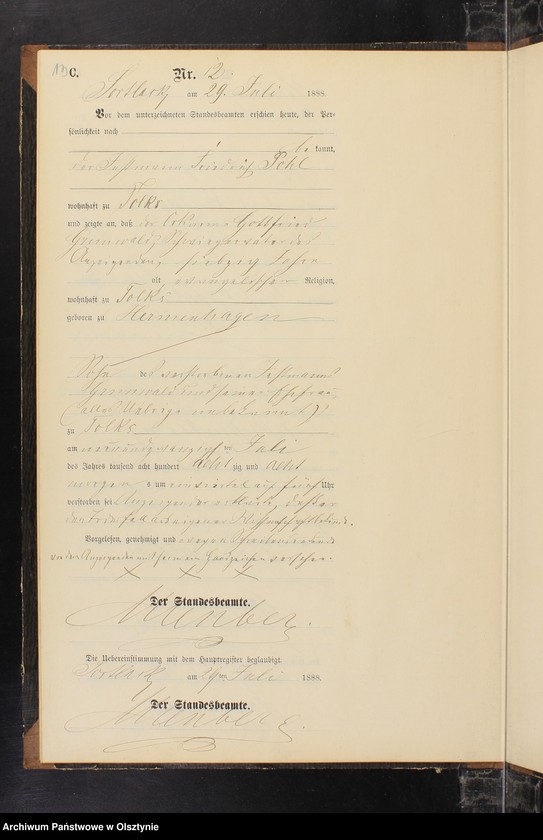 13 C.
Nr. 12
Sortlack am 29. Juli 1888.
Vor dem unterzeichneten Standesbeamten erschien heute, der Per-
sönlichkeit nach
be kannt,
der Friedrich Pohl
wohnhaft zu Tolks
und zeigte an, daß der Gottfried
Grunwald, Schwiegervater des
Anzeigenden, siebzig Jahre
alt, evangelischer Religion,
wohnhaft zu Tolks
geboren zu Hermenhagen
Sohn des verstorbenen
Grunwald und seiner Ehefrau
(alles Uebrige unbekannt)
zu Tolks
am neunundzwanzigsten Juli
des Jahres tausend acht hundert acht zig und acht
morgens um ein viertel auf fünf Uhr
verstorben sei
Vorgelesen, genehmigt und wegen
von dem Anzeigenden mit seinem Handzeichen versehen
X X X
Der Standesbeamte.
Die Uebereinstimmung mit dem Hauptregister beglaubigt.
Sortlack am 29ten Juli 1888.
Der Standesbeamte.
Archiwum Państwowe w Olsztynie